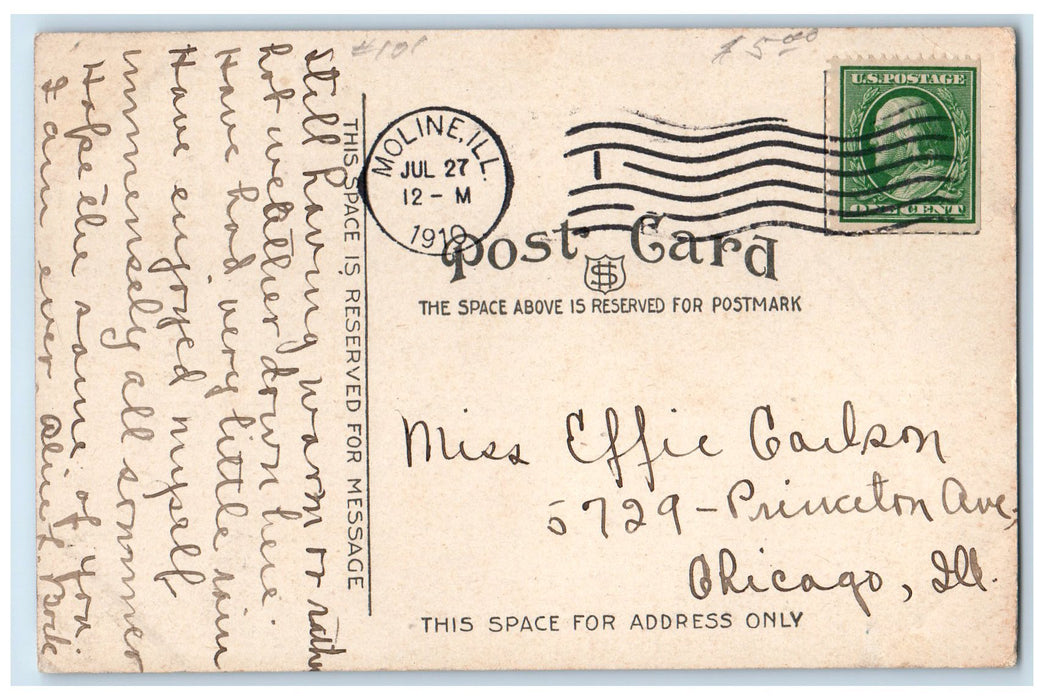 #101
$5.00
U.S. POSTAGE
ONE CENT
MOLINE, ILL.
JUL 27
12 - M
1910
1
Post Card
THE SPACE ABOVE IS RESERVED FOR POSTMARK
THIS SPACE IS RESERVED FOR MESSAGE
Still having warm or rather
hot weather down here
Have had very little rain
Have enjoyed myself
immensely all sommer
Hope the same of you.
I am ever
Miss Effie Carlson
5729 - Princeton Ave,
Chicago, Ill.
THIS SPACE FOR ADDRESS ONLY